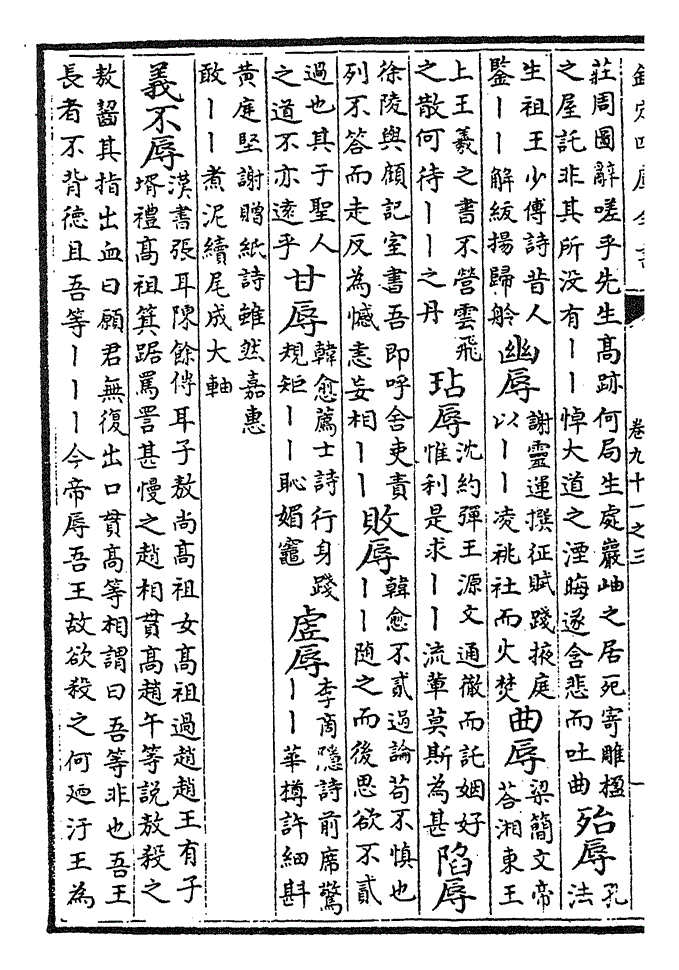 欽定四庫全書
卷九十一之三
一
莊周圖辭嗟乎先生高跡何局生處巖岫之居死寄雕楹
之屋託非其所没有||悼大道之湮晦遂含悲而吐曲
殆辱
孔
法
生祖王少傅詩昔人
鑒||解紱揚歸舲
幽辱
謝靈運撰征賦踐掖庭
以||凌祧社而火焚
曲辱
梁簡文帝
答湘東王
上王羲之書不營雲飛
之散何待||之丹
玷辱
沈約彈王源文通徹而託姻好
惟利是求||流輩莫斯為甚
陷辱
徐陵與顧記室書吾即呼舍吏責
列不答而走反為憾恚妄相||
敗辱
韓愈不貳過論苟不慎也
||随之而後思欲不貳
過也其于聖人
之道不亦遠乎
甘辱
韓愈薦士詩行身踐
規矩||恥媚竈
虚辱
李商隱詩前席驚
||華樽許細斟
黄庭堅謝贈紙詩雖然嘉惠
敢||煮泥續尾成大軸
義不辱
漢書張耳陳餘傳耳子敖尚高祖女高祖過趙趙王有子
壻禮高祖箕踞罵詈甚慢之趙相貫高趙午等説敖殺之
敖齧其指出血曰願君無復出口貫高等相謂曰吾等非也吾王
長者不背德且吾等|||今帝辱吾王故欲殺之何廼汙王為